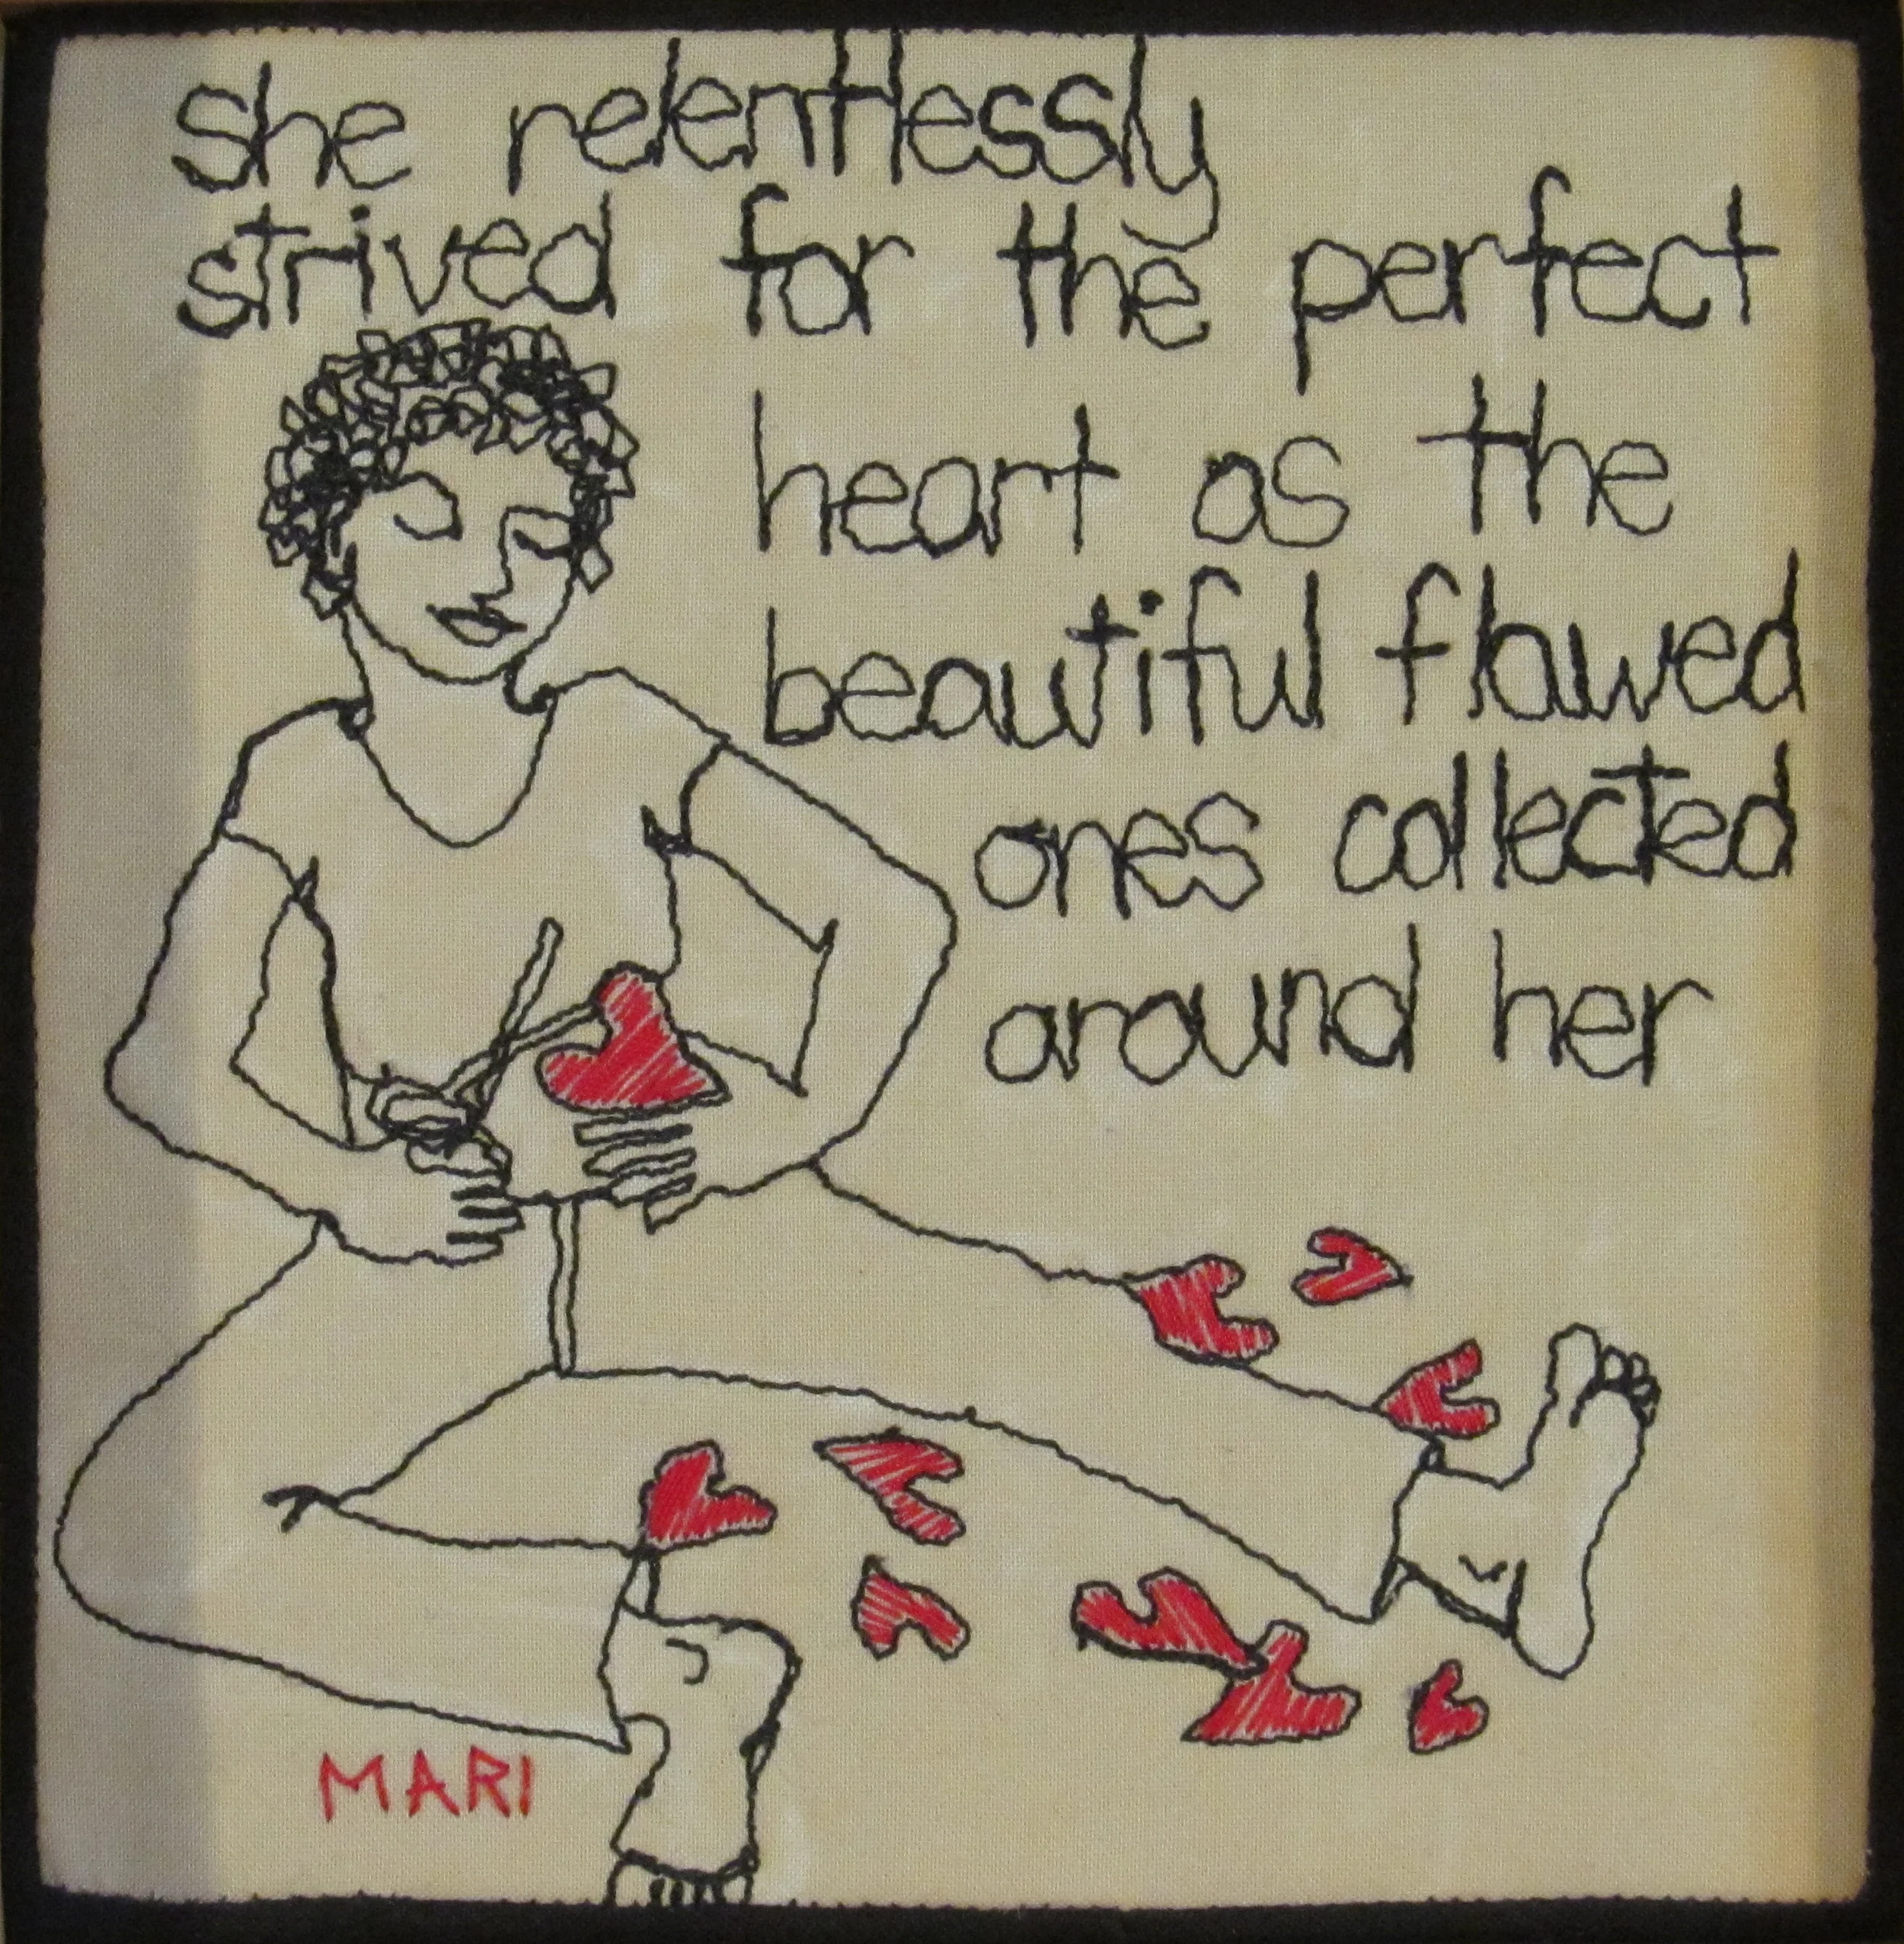 she relentlessly
strived for the perfect
heart as the
beautiful flawed
ones collected
around her
MARI